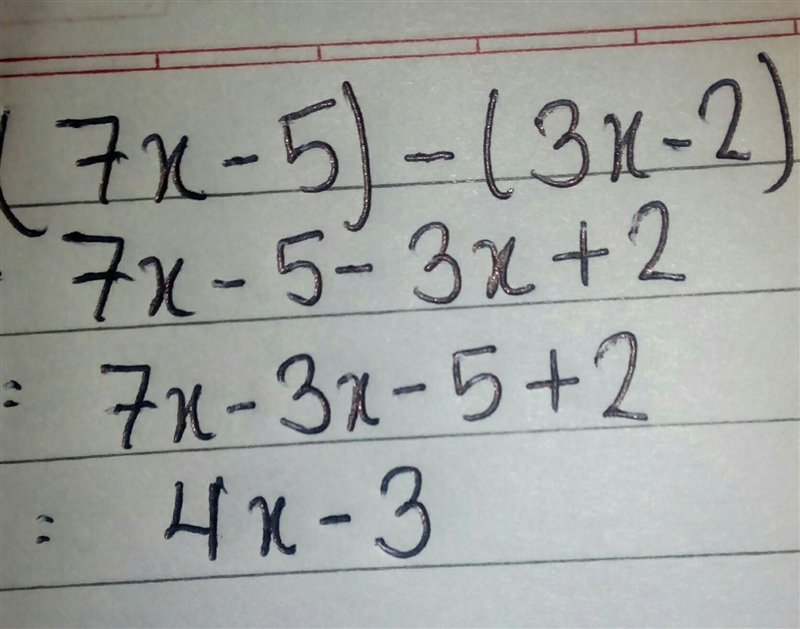 (7x-5)-(3x-2)
7x-5-3x+2
= 7x-3x-5+2
= 4x-3